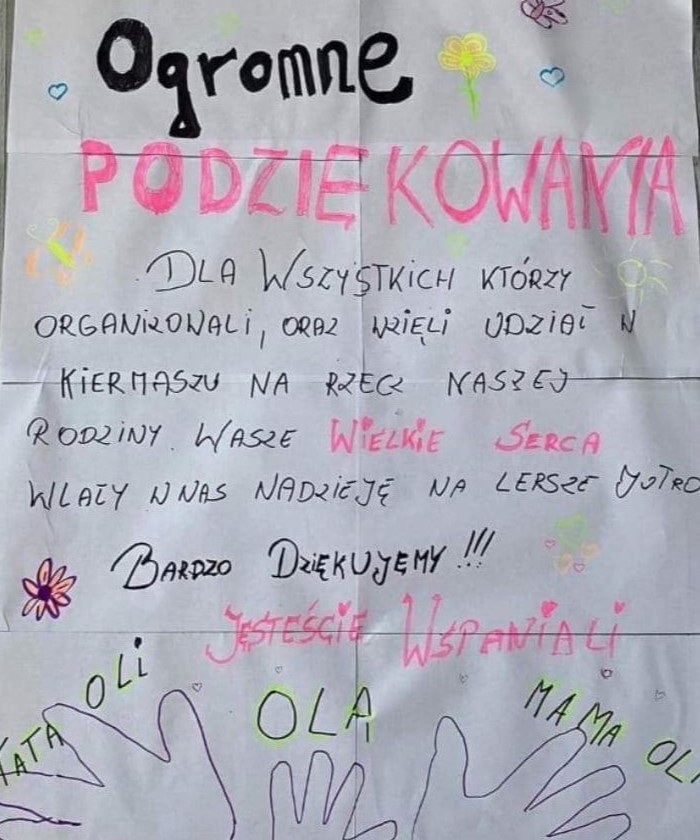 Ogromne
PODZIĘKOWANIA
DLA WSZYSTKICH KTÓRZY
ORGANIZOWALI, ORAZ WZIĘLI UDZIAŁ W
KIERMASZU NA RZECZ NASZEJ
RODZINY. WASZE WIELKIE SERCA
WLAŁY W NAS NADZIEJĘ NA LEPSZE JUTRO
BARDZO DZIĘKUJEMY!!!
JESTEŚCIE WSPANIALI
TATA OLI
OLA
MAMA OLI